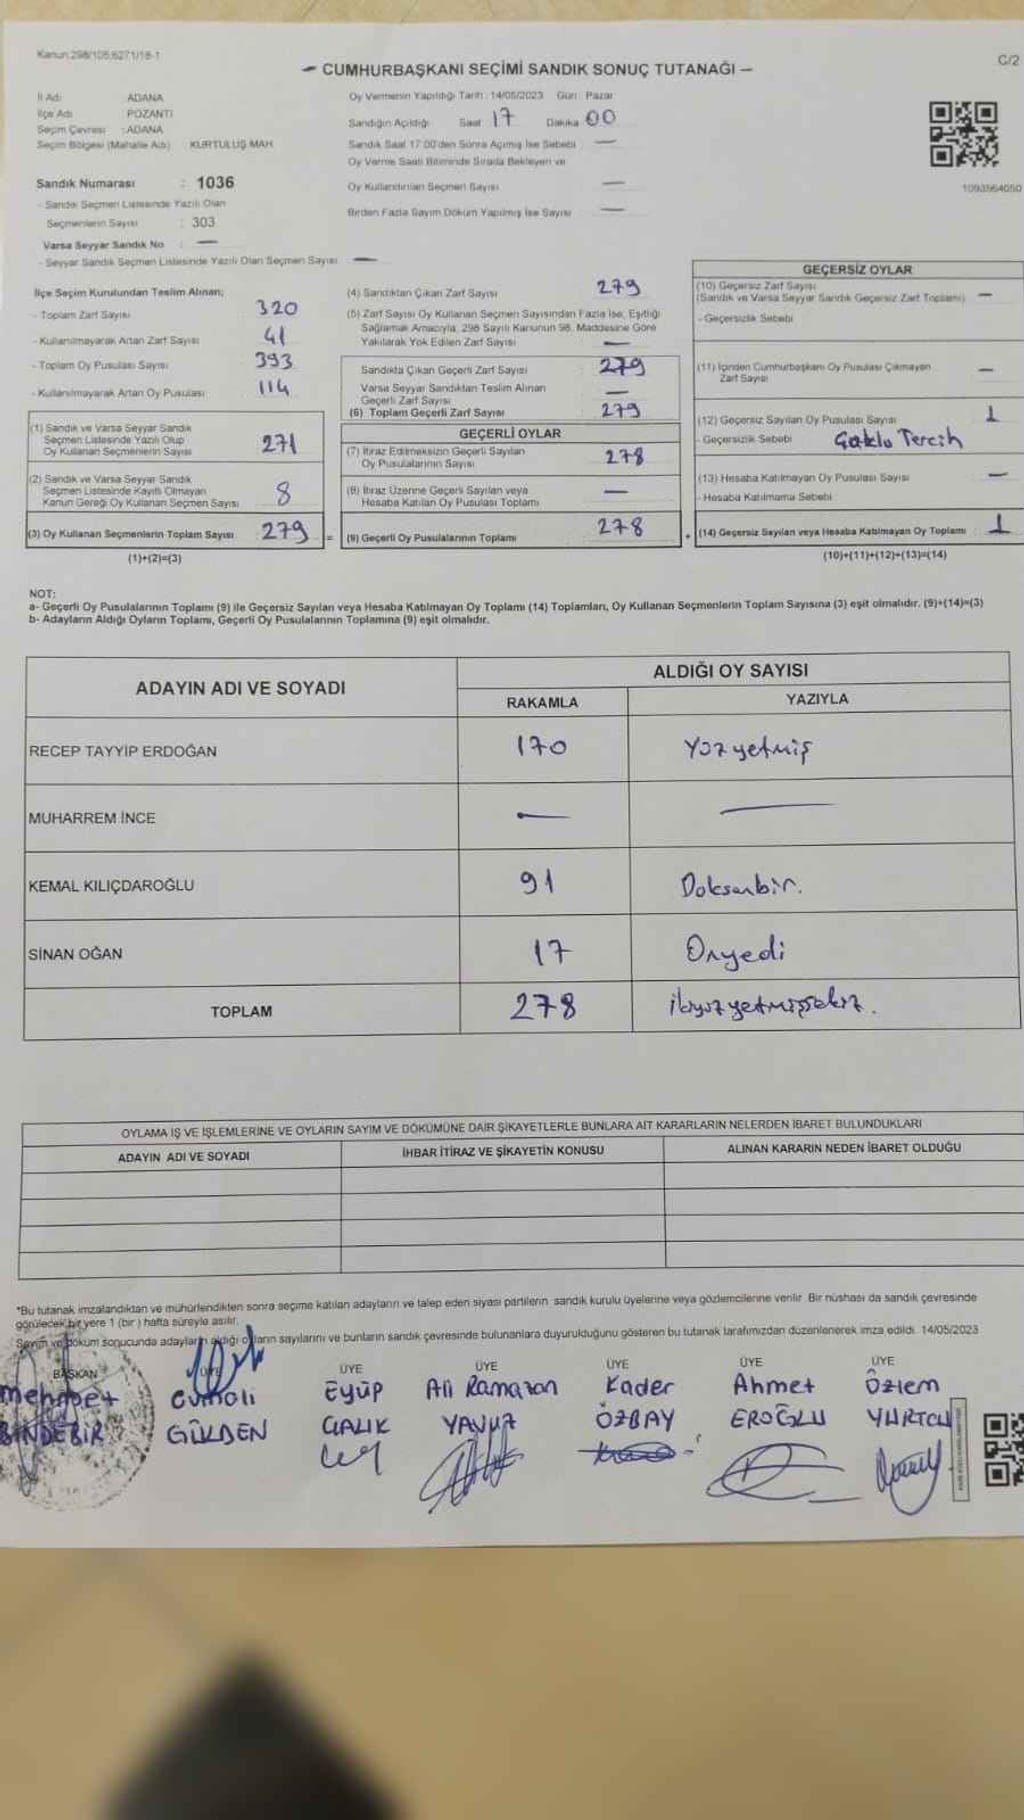 Kanun:298/105,6271/18-1
C/2
CUMHURBAŞKANI SEÇİMİ SANDIK SONUÇ TUTANAĞI
İl Adı ADANA
İlçe Adı POZANTI
Seçim Çevresi : ADANA
Seçim Bölgesi (Mahalle Adı) KURTULUŞ MAH
Sandık Numarası : 1036
- Sandık Seçmen Listesinde Yazılı Olan
Seçmenlerin Sayısı : 303
Varsa Seyyar Sandık No : —
- Seyyar Sandık Seçmen Listesinde Yazılı Olan Seçmen Sayısı —
Oy Vermenin Yapıldığı Tarih : 14/05/2023 Gün : Pazar
Sandığın Açıldığı Saat 17 Dakika 00
Sandık Saat 17:00'den Sonra Açılmış İse Sebebi —
Oy Verme Saati Bitiminde Sırada Bekleyen ve
Oy Kullandırılan Seçmen Sayısı —
Birden Fazla Sayım Döküm Yapılmış İse Sayısı —
1093564050
İlçe Seçim Kurulundan Teslim Alınan;
- Toplam Zarf Sayısı 320
- Kullanılmayarak Artan Zarf Sayısı 41
- Toplam Oy Pusulası Sayısı 393
- Kullanılmayarak Artan Oy Pusulası 114
(1) Sandık ve Varsa Seyyar Sandık
Seçmen Listesinde Yazılı Olup
Oy Kullanan Seçmenlerin Sayısı 271
(2) Sandık ve Varsa Seyyar Sandık
Seçmen Listesinde Kayıtlı Olmayan
Kanun Gereği Oy Kullanan Seçmen Sayısı 8
(3) Oy Kullanan Seçmenlerin Toplam Sayısı 279 =
(1)+(2)=(3)
(4) Sandıktan Çıkan Zarf Sayısı 279
(5) Zarf Sayısı Oy Kullanan Seçmen Sayısından Fazla İse, Eşitliği
Sağlamak Amacıyla, 298 Sayılı Kanunun 98. Maddesine Göre
Yakılarak Yok Edilen Zarf Sayısı —
Sandıkta Çıkan Geçerli Zarf Sayısı 279
Varsa Seyyar Sandıktan Teslim Alınan
Geçerli Zarf Sayısı —
(6) Toplam Geçerli Zarf Sayısı 279
GEÇERLİ OYLAR
(7) İtiraz Edilmeksizin Geçerli Sayılan
Oy Pusulalarının Sayısı 278
(8) İtiraz Üzerine Geçerli Sayılan veya
Hesaba Katılan Oy Pusulası Toplamı —
(9) Geçerli Oy Pusulalarının Toplamı 278 +
GEÇERSİZ OYLAR
(10) Geçersiz Zarf Sayısı
(Sandık ve Varsa Seyyar Sandık Geçersiz Zarf Toplamı) —
- Geçersizlik Sebebi
(11) İçinden Cumhurbaşkanı Oy Pusulası Çıkmayan
Zarf Sayısı —
(12) Geçersiz Sayılan Oy Pusulası Sayısı 1
- Geçersizlik Sebebi Çoklu Tercih
(13) Hesaba Katılmayan Oy Pusulası Sayısı —
- Hesaba Katılmama Sebebi
(14) Geçersiz Sayılan veya Hesaba Katılmayan Oy Toplamı : 1
(10)+(11)+(12)+(13)=(14)
NOT:
a- Geçerli Oy Pusulalarının Toplamı (9) ile Geçersiz Sayılan veya Hesaba Katılmayan Oy Toplamı (14) Toplamları, Oy Kullanan Seçmenlerin Toplam Sayısına (3) eşit olmalıdır. (9)+(14)=(3)
b- Adayların Aldığı Oyların Toplamı, Geçerli Oy Pusulalarının Toplamına (9) eşit olmalıdır.
ADAYIN ADI VE SOYADI ALDIĞI OY SAYISI
RAKAMLA YAZIYLA
RECEP TAYYİP ERDOĞAN 170 Yüzyetmiş
MUHARREM İNCE — —
KEMAL KILIÇDAROĞLU 91 Doksanbir.
SİNAN OĞAN 17 Onyedi
TOPLAM 278 ikiyüzyetmişsekiz.
OYLAMA İŞ VE İŞLEMLERİNE VE OYLARIN SAYIM VE DÖKÜMÜNE DAİR ŞİKAYETLERLE BUNLARA AİT KARARLARIN NELERDEN İBARET BULUNDUKLARI
ADAYIN ADI VE SOYADI İHBAR İTİRAZ VE ŞİKAYETİN KONUSU ALINAN KARARIN NEDEN İBARET OLDUĞU
*Bu tutanak imzalandıktan ve mühürlendikten sonra seçime katılan adayların ve talep eden siyasi partilerin sandık kurulu üyelerine veya gözlemcilerine verilir. Bir nüshası da sandık çevresinde
görülecek bir yere 1 (bir) hafta süreyle asılır.
Sayım ve döküm sonucunda adayların aldığı oyların sayılarını ve bunların sandık çevresinde bulunanlara duyurulduğunu gösteren bu tutanak tarafımızdan düzenlenerek imza edildi. 14/05/2023
BAŞKAN ÜYE ÜYE ÜYE ÜYE ÜYE ÜYE
Mehmet Cumali Eyüp Ali Ramazan Kader Ahmet Özlem
BİNDEBİR GÜLDEN ÇALIK YAVUZ ÖZBAY EROĞLU YURTCU